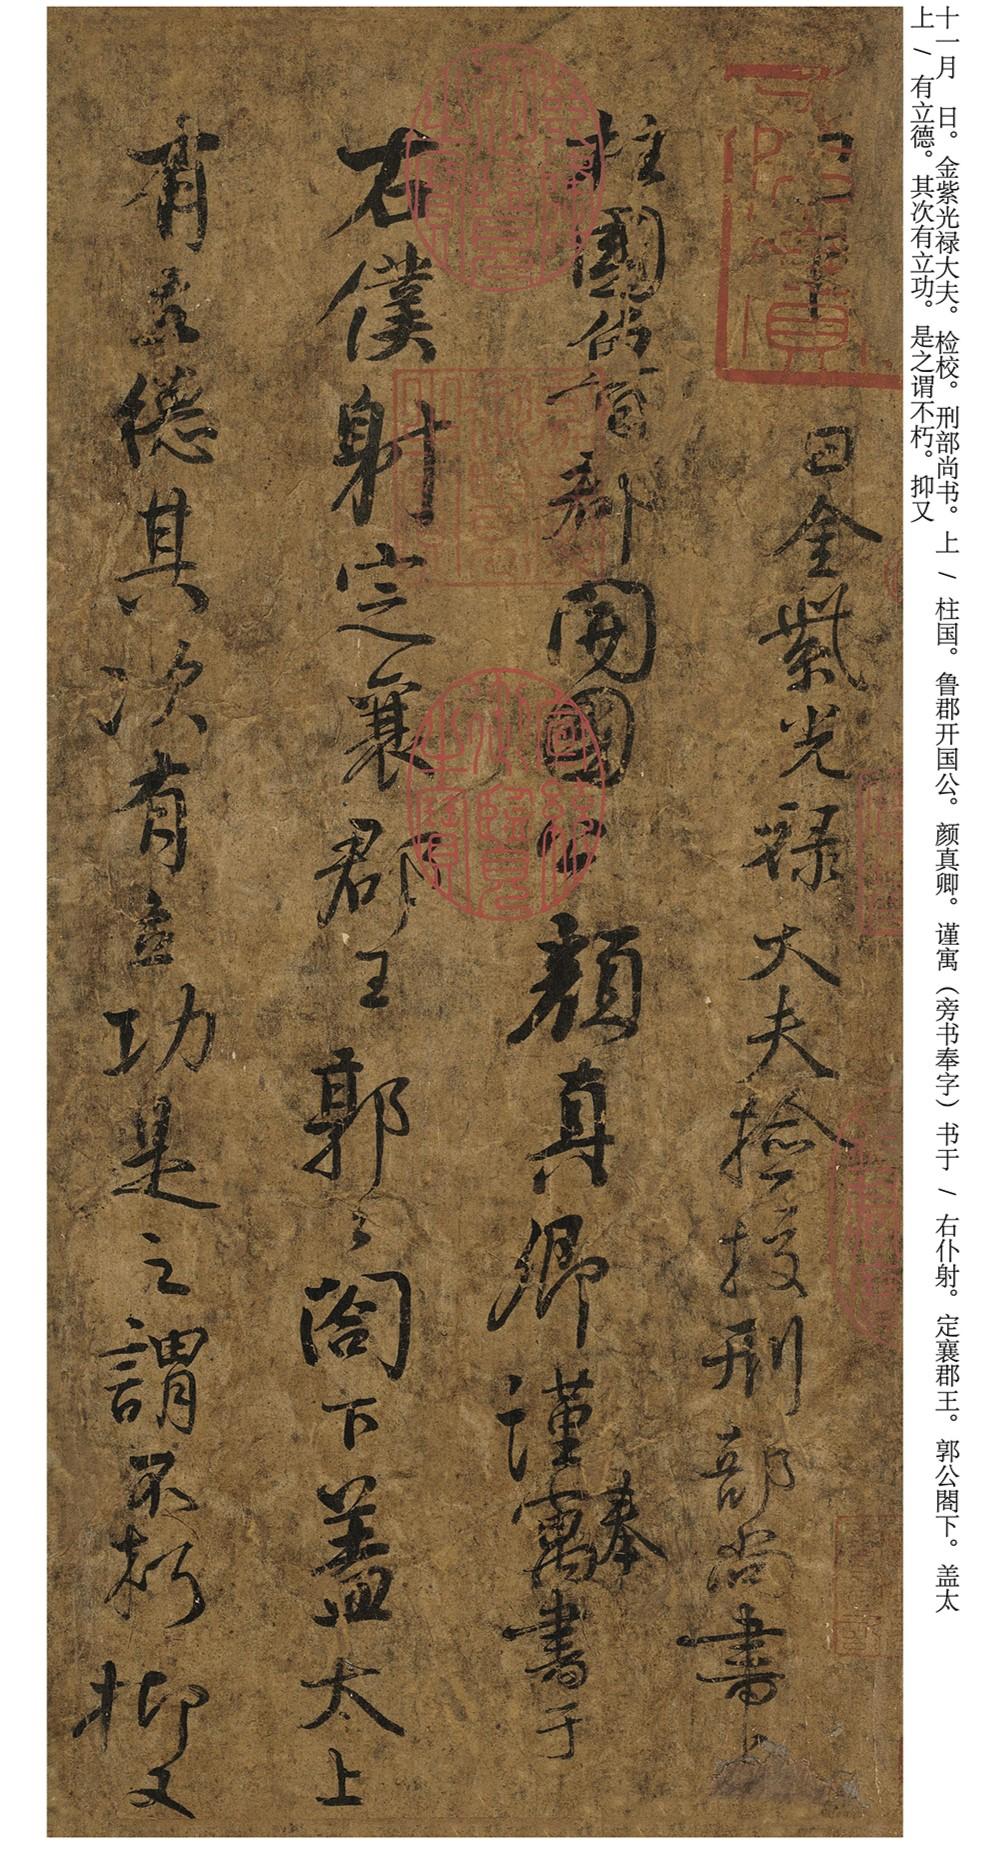 十一月 日。金紫光禄大夫。检校。刑部尚书。上 / 柱国。鲁郡开国公。颜真卿。谨寓（旁书奉字）书于 / 右仆射。定襄郡王。郭公閤下。盖太
上 / 有立德。其次有立功。是之谓不朽。抑又
日金紫光祿大夫檢校刑部尚書上
柱國魯郡開國公顏真卿謹寓書于
奉
右僕射定襄郡王郭公閤下蓋太上
有立德其次有立功是之謂不朽抑又
宣統御覽之寶